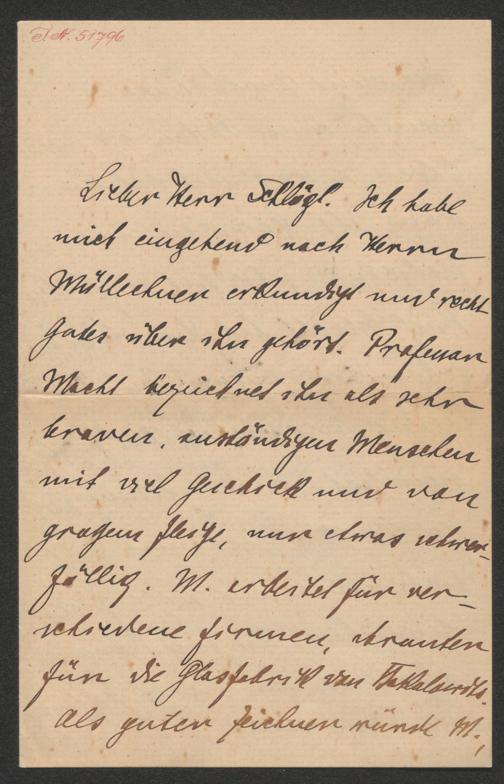 I. N. 51796
Lieber Herr Schlögl. Ich habe
mich eingehend nach Herrn
Müllechner erkundigt und recht
Gutes über ihn gehört. Professor
Macht bezeichnet ihn als sehr
braven, anständigen Menschen
mit viel Geschick und von
großem Fleiße, nur etwas schwer-
fällig. M. arbeitet für ver-
schiedene Firmen, darunter
für die Glasfabrik von
Als guten Zeichner würde M.,